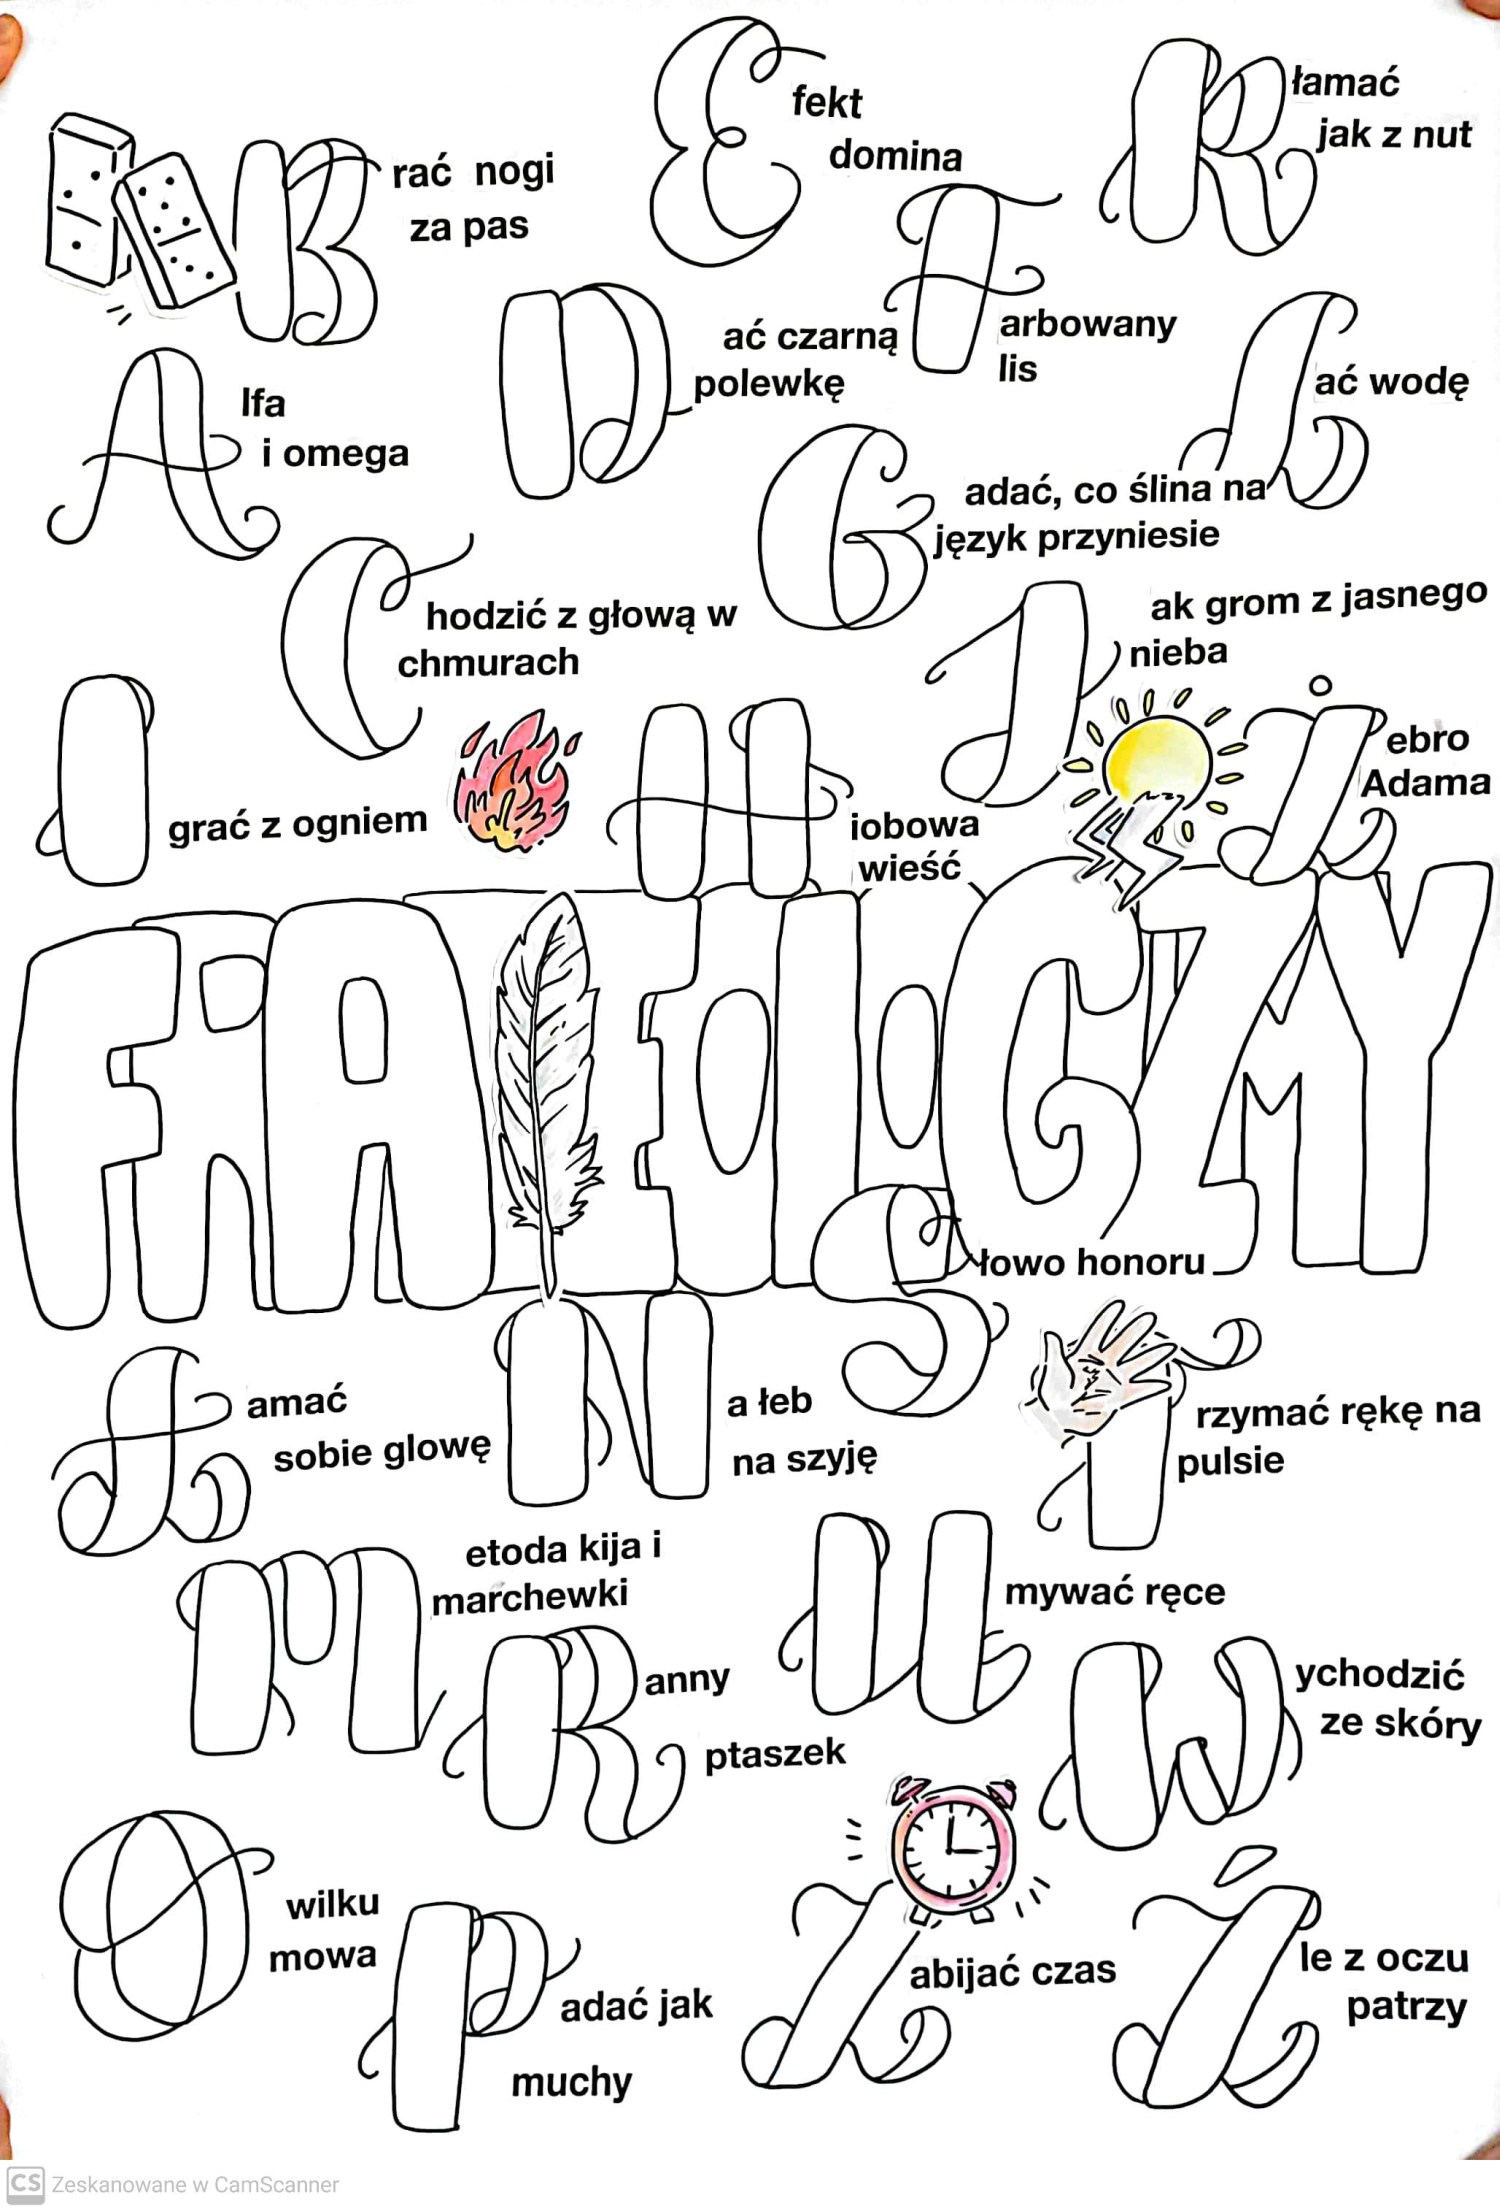 Efekt
domina
Kłamać
jak z nut
Brać nogi
za pas
Farbowany
lis
Dać czarną
polewkę
Lać wodę
Alfa
i omega
Gadać, co ślina na
język przyniesie
Chodzić z głową w
chmurach
Jak grom z jasnego
nieba
Żebro
Adama
Igrać z ogniem
Hiobowa
wieść
FRAZEOLOGIZMY
Słowo honoru
Łamać
sobie glowę
Na łeb
na szyję
Trzymać rękę na
pulsie
Metoda kija i
marchewki
Umywać ręce
Ranny
ptaszek
Wychodzić
ze skóry
O wilku
mowa
Padać jak
muchy
Zabijać czas
Źle z oczu
patrzy
CS Zeskanowane w CamScanner